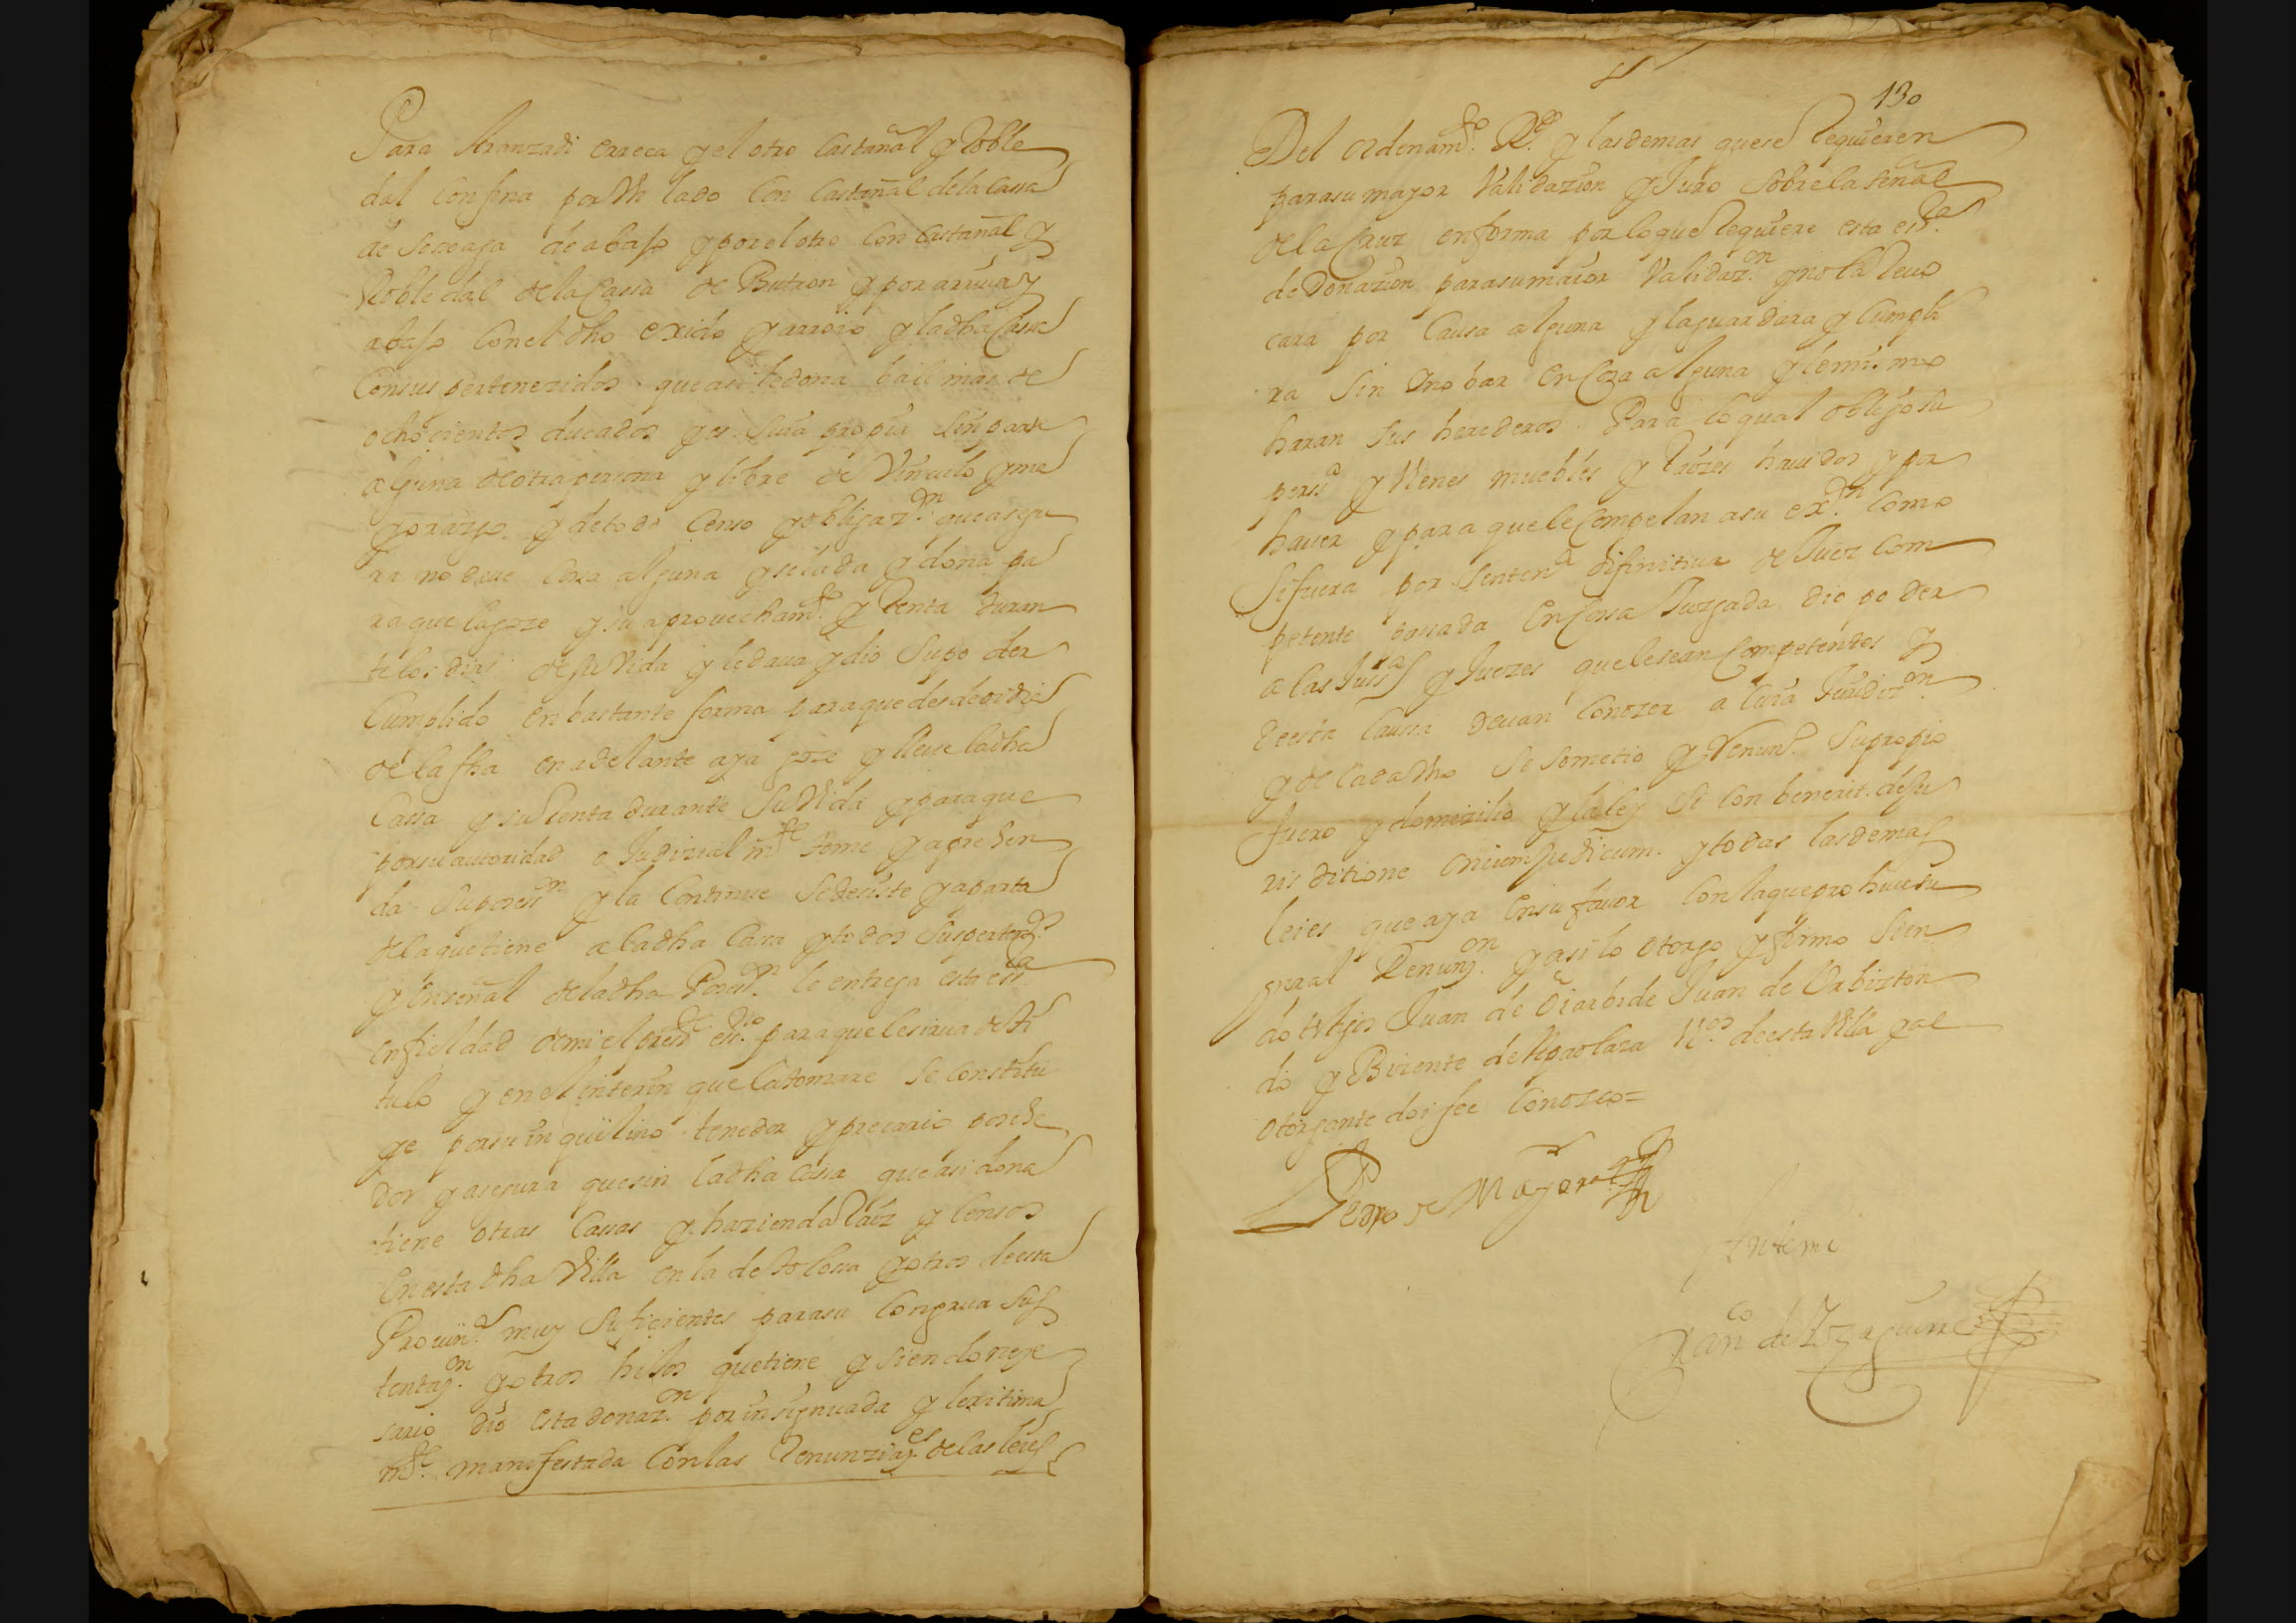 Para Aranzadi erreca y el otro Castañal y Roble
dal confina por Vn lado Con Castañal de la Cassa
de de abajo y por el otro Con Castañal y
Robledal de la Cassa de Butron y por arriua y
abajo Con el dho exido y arroio y la dha Cassa
Con sus pertenezidos que asi le dona bale mas de
ochocientos ducados y es suia propia sin parte
alguna de otra persona y libre de Vinculo y ma
yorazgo y de todo Censo y obligazon que asegu
ra no deue Cosa alguna y se la da y dona pa
ra que la goze y su aprouechamto y Renta duran
te los dias de su Vida y le daua y dio su poder
Cumplido en bastante forma para que desde oi dia
de la fha en adelante aya goze y lleue la dha
Cassa y su Renta durante su Vida y para que
por su autoridad o Judizialmte tome y aprehen
da su posesson y la Continue se desiste y aparta
de la que tiene a la dha Cassa y todos sus pertenezdos
y en señal de la dha Posson le entrega esta essra
en fieldad de mi el presste essno para que le sirua de ti
tulo y en el interin que la tomare se constitu
ye por su inquilino tenedor y precario posehe
dor y asegura que sin la dha Cassa que asi dona
tiene otras Cassas y hazienda Raiz y Censos
en esta dha Villa en la de Tolosa y otros de esta
Prouina muy Suficientes para su Congrua sus
tentazon y otros hijos que tiene y siendo neze
sario dio esta donazon por insignuada y lexitima
mte manifestada Con las Renunziazes de las leies
130
Del ordenamto Rl y las demas que se Requieren
para su mayor Validazion y Juro Sobre la señal
de la Cruz en forma por lo que Requiere esta essra
de Donazion para su maior Validazon y no la Reuo
cara por Causa alguna y la guardara y Cumpli
ra sin Innobar en Cosa alguna y lo mismo
haran sus herederos. Para lo qual obligo su
persa y Vienes muebles y Raizes hauidos y por
hauer y para que le Compelan a su exon Como
si fuera por Sentena difinitiua de Juez Com
petente passada en Cossa Juzgada dio poder
a las Jussas y Juezes que le sean Competentes y
de esta Caussa deuan Conozer a Cuia Jurisdizon
y de cada Vno se sometio y Renunio su propio
fuero y domizilio y la ley si conbenerit de Ju
risditione oniun Judicum. y todas las demas
leies que aya en su fauor Con la que prohiue su
gnral Renunzon y asi lo otorgo y firmo sien
do testigos Juan de Oiarbide Juan de Vrbizton
do y Bizente de Vpaolaza Vezos de esta Villa y al
otorgante doi fee Conozco=
Pedro de Mayora
Ante mi
Franco de Yzaguirre